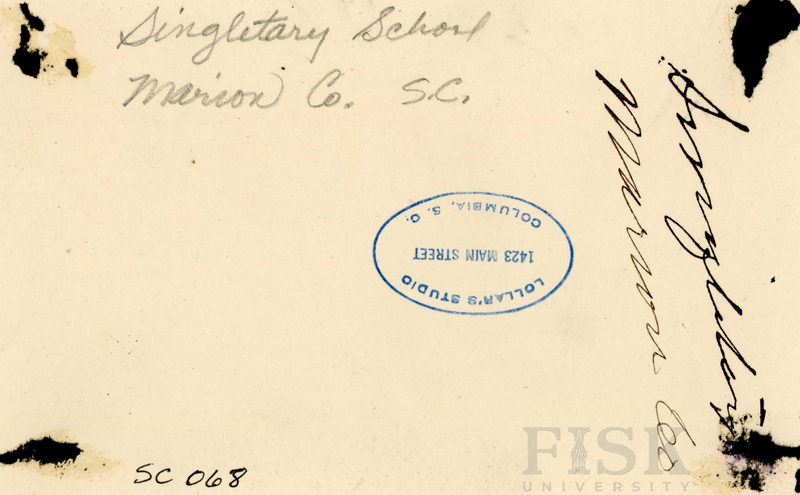 Singletary School
Marion Co. S.C.
Singletary
Marion Co
LOLLAR'S STUDIO
1423 MAIN STREET
COLUMBIA, S. C.
SC 068
FISK
UNIVERSITY